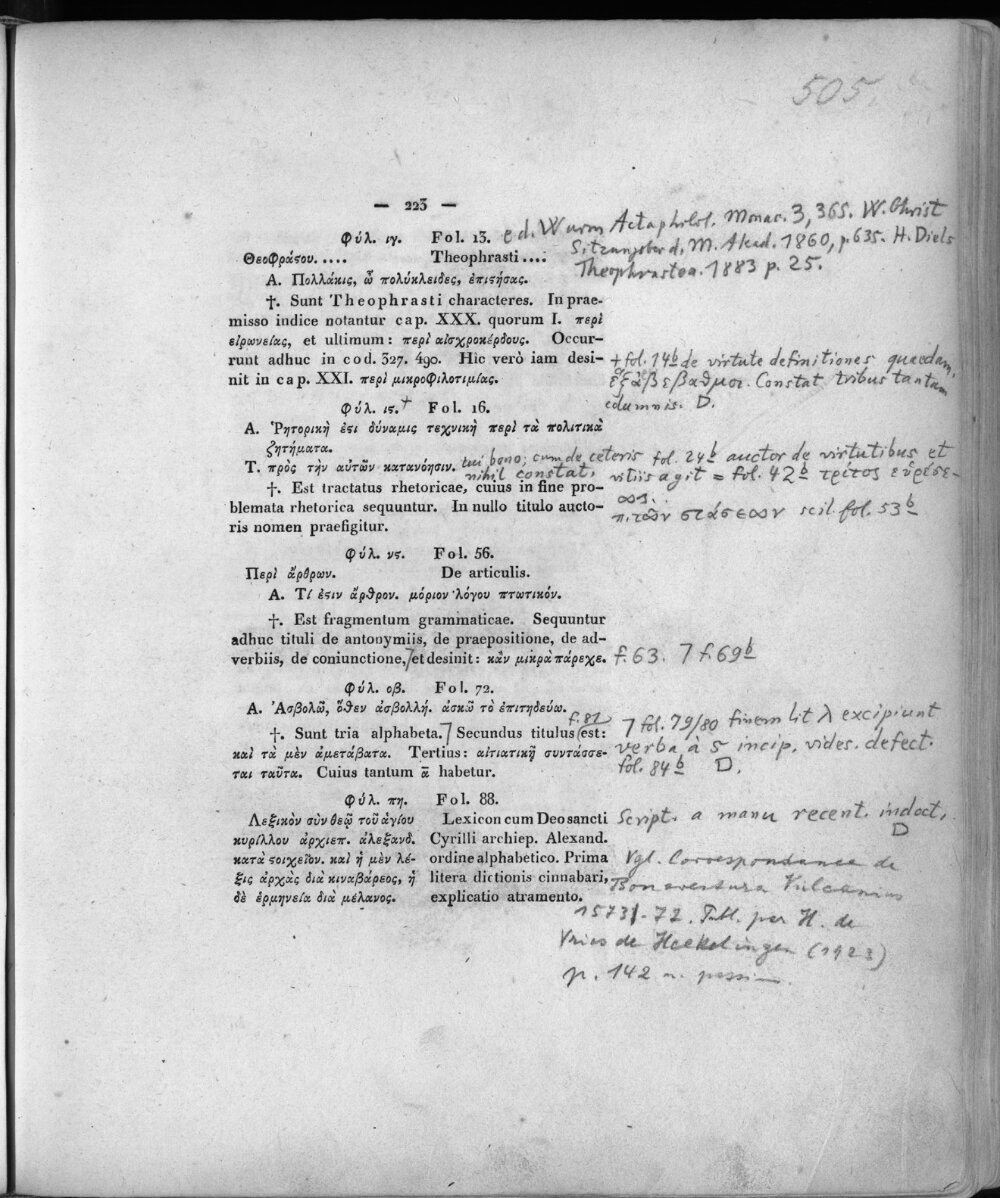 505.
— 223 —
Φύλ. ιγ. Fol. 13. ed. Wurm Acta philol. Monac. 3, 365. W. Christ
Sitzungsber d. M. Akad. 1860, p. 635. H. Diels
Theophrastea. 1883 p. 25.
Θεοφράϛου. .... Theophrasti ....
Α. Πολλάκις, ὦ πολύκλειδες, ἐπιϛήσας.
†. Sunt Theophrasti characteres. In prae-
misso indice notantur cap. XXX. quorum I. περὶ
εἰρωνείας, et ultimum: περὶ αἰσχροκέρδους. Occur-
runt adhuc in cod. 327. 490. Hic verò iam desi-
nit in cap. XXI. περὶ μικροφιλοτιμίας.
+ fol. 14b de virtute definitiones quaedam,
Constat tribus tantum
columnis. D.
Φύλ. ιϛ.+ Fol. 16.
Α. Ῥητορική ἐϛι δύναμις τεχνικὴ περὶ τὰ πολιτικὰ
ζητήματα.
Τ. πρὸς τὴν αὐτῶν κατανόησιν. cui bono; cum de ceteris
nihil constat.
fol. 24b auctor de virtutibus et
vitiis agit = fol. 42b τρίτος εὑρέσε-
ως.
π. τῶν στάσεων scil. fol. 53b
†. Est tractatus rhetoricae, cuius in fine pro-
blemata rhetorica sequuntur. In nullo titulo aucto-
ris nomen praefigitur.
Φύλ. νϛ. Fol. 56.
Περὶ ἄρθρων. De articulis.
Α. Τί ἐϛιν ἄρθρον. μόριον λόγου πτωτικόν.
†. Est fragmentum grammaticae. Sequuntur
adhuc tituli de antonymiis, de praepositione, de ad-
verbiis, de coniunctione, et desinit: κἂν μικρὰ πάρεχε. f. 63. 7 f. 69b
Φύλ. οβ. Fol. 72.
Α. Ἀσβολῶ, ὅθεν ἀσβολλή. ἀσκῶ τὸ ἐπιτηδεύω.
f. 81
†. Sunt tria alphabeta. Secundus titulus est:
καὶ τὰ μὲν ἀμετάβατα. Tertius: αἰτιατικῇ συντάσσε-
ται ταῦτα. Cuius tantum ᾱ habetur.
7 fol. 79/80 finem lit λ excipiunt
verba à ς incip. vides. defect.
fol. 84b D.
Φύλ. πη. Fol. 88.
Λεξικὸν σὺν θεῷ τοῦ ἁγίου Lexicon cum Deo sancti
κυρίλλου ἀρχιεπ. ἀλεξανδ. Cyrilli archiep. Alexand.
κατὰ ϛοιχεῖον. καὶ ἡ μὲν λέ- ordine alphabetico. Prima
ξις ἀρχὰς διὰ κιναβάρεος, ἡ litera dictionis cinnabari,
δὲ ἑρμηνεία διὰ μέλανος. explicatio atramento.
Script. a manu recent. indoct.
D
Vgl. Correspondance de
Bonaventura Vulcanius
1573/-72. Publ. par H. de
Vries de Heekelingen (1923)
p. 142 u. passim.